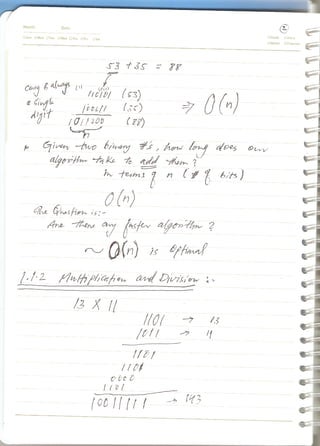 2
53 + 35 = 88
Carry is always
a single
digit
110101 (53)
100011 (35)
1011000 (88)
n
⇒ O(n)
Given two binary #'s, how long does our
algorithm take to add them?
in terms of n (# of bits)
O(n)
The Question is:-
Are there any faster algorithm?
~ O(n) is optimal
1.1.2 Multiplication and Division :-
13 X 11
1101 → 13
1011 → 11
1101
1101
0000
1101
10011111 → 143